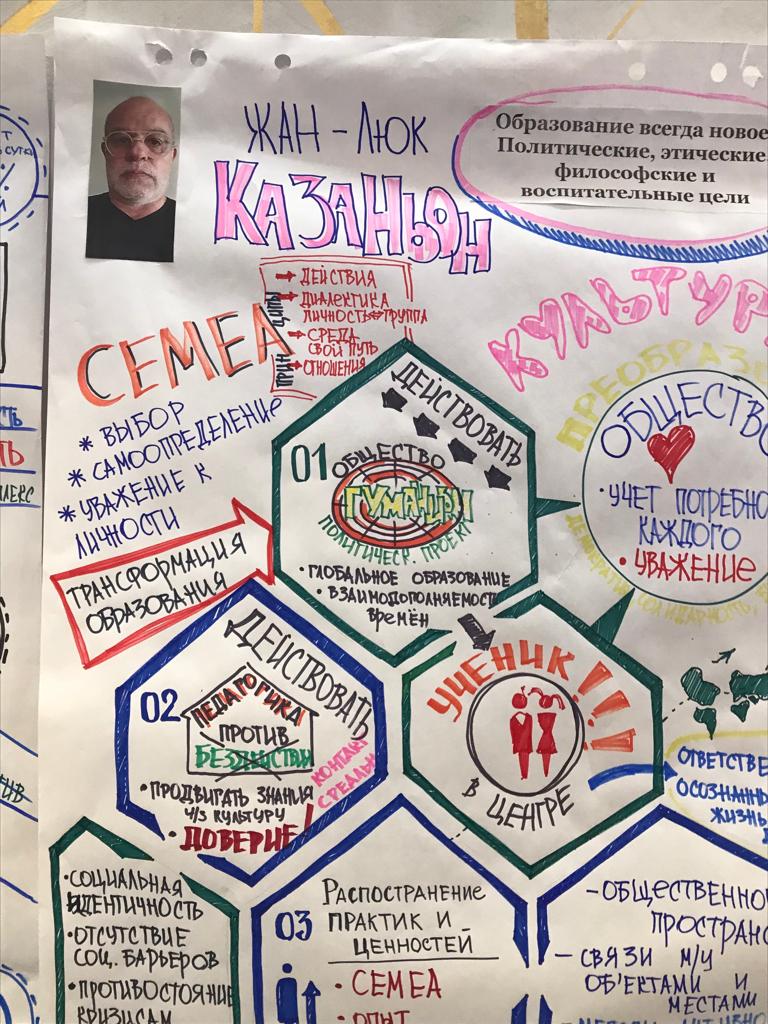 ЖАН – ЛЮК
КАЗАНЬОН
Образование всегда новое
Политические, этические,
философские и
воспитательные цели
СЕМЕА
→ ДЕЙСТВИЯ
→ ДИАЛЕКТИКА
ЛИЧНОСТЬ⇔ГРУППА
→ СРЕДА
СВОЙ ПУТЬ
→ ОТНОШЕНИЯ
* ВЫБОР
* САМООПРЕДЕЛЕНИЕ
* УВАЖЕНИЕ К
ЛИЧНОСТИ
ТРАНСФОРМАЦИЯ
ОБРАЗОВАНИЯ
01
ДЕЙСТВОВАТЬ
ОБЩЕСТВО
ПОЛИТИЧЕСК. ПРОЕКТ
• ГЛОБАЛЬНОЕ ОБРАЗОВАНИЕ
• ВЗАИМОДОПОЛНЯЕМОСТЬ
ВРЕМЁН
КУЛЬТУР
ПРЕОБРАЗ
ОБЩЕСТВО
• УЧЕТ ПОТРЕБНО
КАЖДОГО
• УВАЖЕНИЕ
02
ДЕЙСТВОВАТЬ
ПЕДАГОГИКА
ПРОТИВ
БЕЗДЕЙСТВИЯ
КОНТАКТ
• ПРОДВИГАТЬ ЗНАНИЯ
Ч/З КУЛЬТУРУ
• ДОВЕРИЕ!
УЧЕНИК!!!
В ЦЕНТРЕ
ОТВЕТСТВЕ
ОСОЗНАНН
ЖИЗНЬ
• СОЦИАЛЬНАЯ
ИДЕНТИЧНОСТЬ
• ОТСУТСТВИЕ
СОЦ. БАРЬЕРОВ
• ПРОТИВОСТОЯНИЕ
КРИЗИСАМ
03
РАСПОСТРАНЕНИЕ
ПРАКТИК И
ЦЕННОСТЕЙ
• СЕМЕА
• ОПЫТ
– ОБЩЕСТВЕННО
ПРОСТРАНС
– СВЯЗИ М/У
ОБЪЕКТАМИ И
МЕСТАМИ